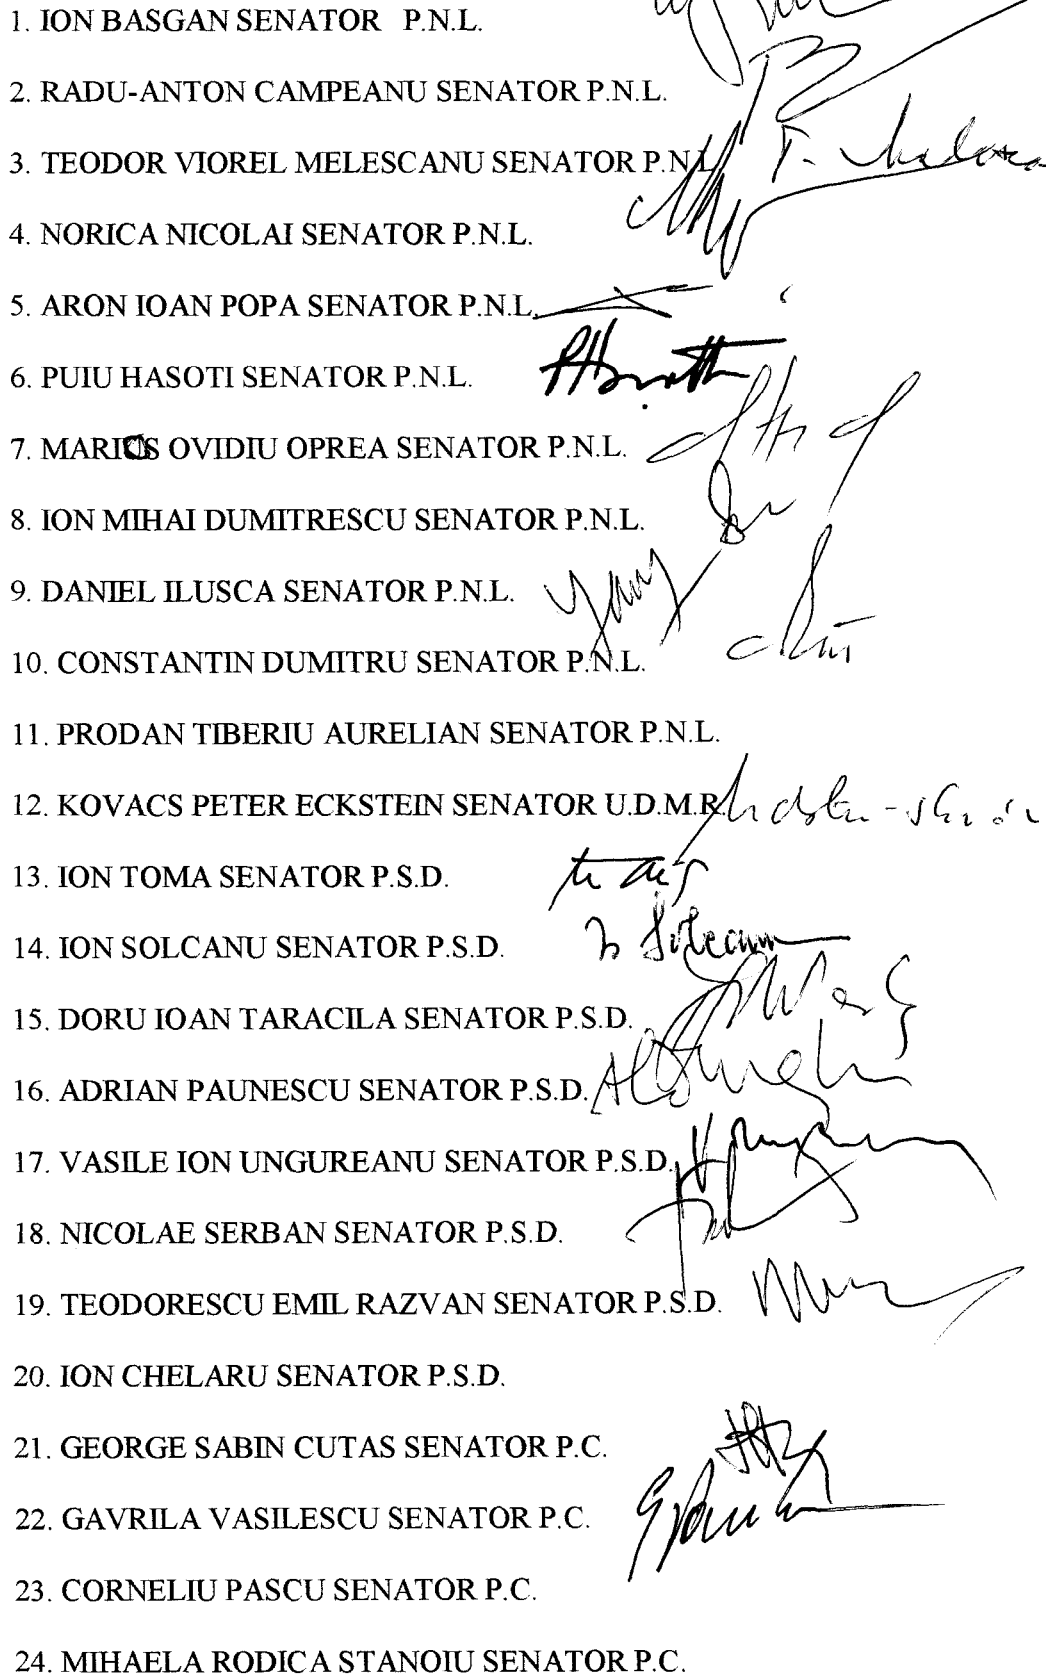 1. ION BASGAN SENATOR P.N.L.
2. RADU-ANTON CAMPEANU SENATOR P.N.L.
3. TEODOR VIOREL MELESCANU SENATOR P.N.L.
4. NORICA NICOLAI SENATOR P.N.L.
5. ARON IOAN POPA SENATOR P.N.L.
6. PUIU HASOTI SENATOR P.N.L.
7. MARIUS OVIDIU OPREA SENATOR P.N.L.
8. ION MIHAI DUMITRESCU SENATOR P.N.L.
9. DANIEL ILUSCA SENATOR P.N.L.
10. CONSTANTIN DUMITRU SENATOR P.N.L.
11. PRODAN TIBERIU AURELIAN SENATOR P.N.L.
12. KOVACS PETER ECKSTEIN SENATOR U.D.M.R.
13. ION TOMA SENATOR P.S.D.
14. ION SOLCANU SENATOR P.S.D.
15. DORU IOAN TARACILA SENATOR P.S.D.
16. ADRIAN PAUNESCU SENATOR P.S.D.
17. VASILE ION UNGUREANU SENATOR P.S.D.
18. NICOLAE SERBAN SENATOR P.S.D.
19. TEODORESCU EMIL RAZVAN SENATOR P.S.D.
20. ION CHELARU SENATOR P.S.D.
21. GEORGE SABIN CUTAS SENATOR P.C.
22. GAVRILA VASILESCU SENATOR P.C.
23. CORNELIU PASCU SENATOR P.C.
24. MIHAELA RODICA STANOIU SENATOR P.C.